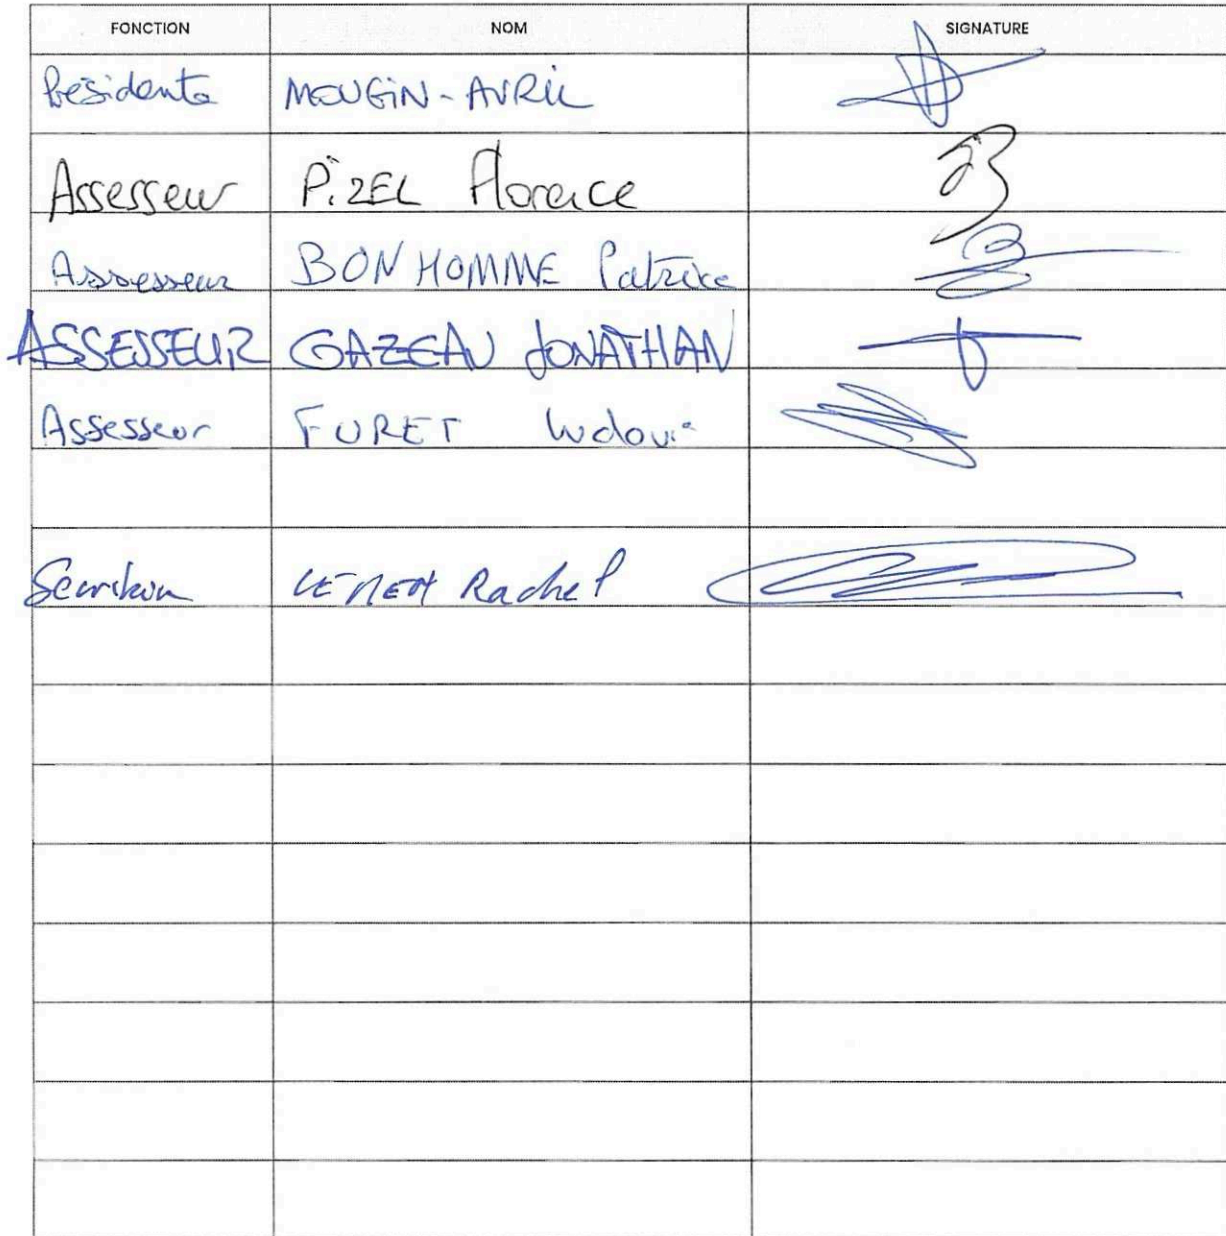 FONCTION NOM SIGNATURE
Présidente MOUGIN-AVRIL
Assesseur PIZEL Florence
Assesseur BONHOMME Patrice
ASSESSEUR GAZEAU JONATHAN
Assesseur FURET Ludovic
Rachel